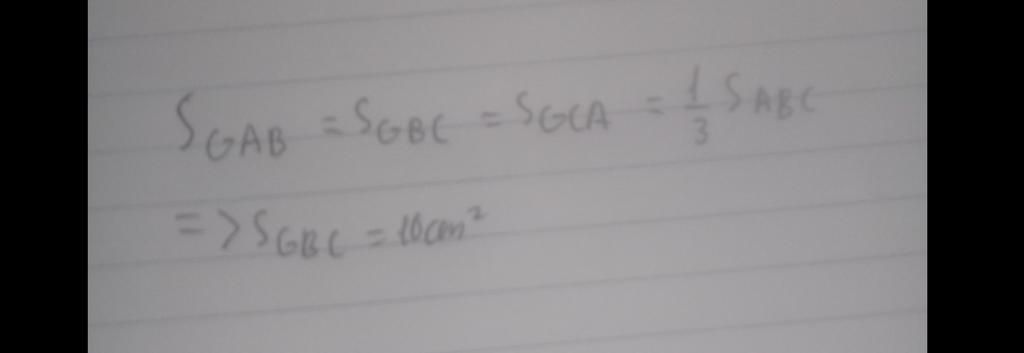 S_GAB = S_GBC = S_GCA = 1/3 S_ABC
=> S_GBC = 10cm²